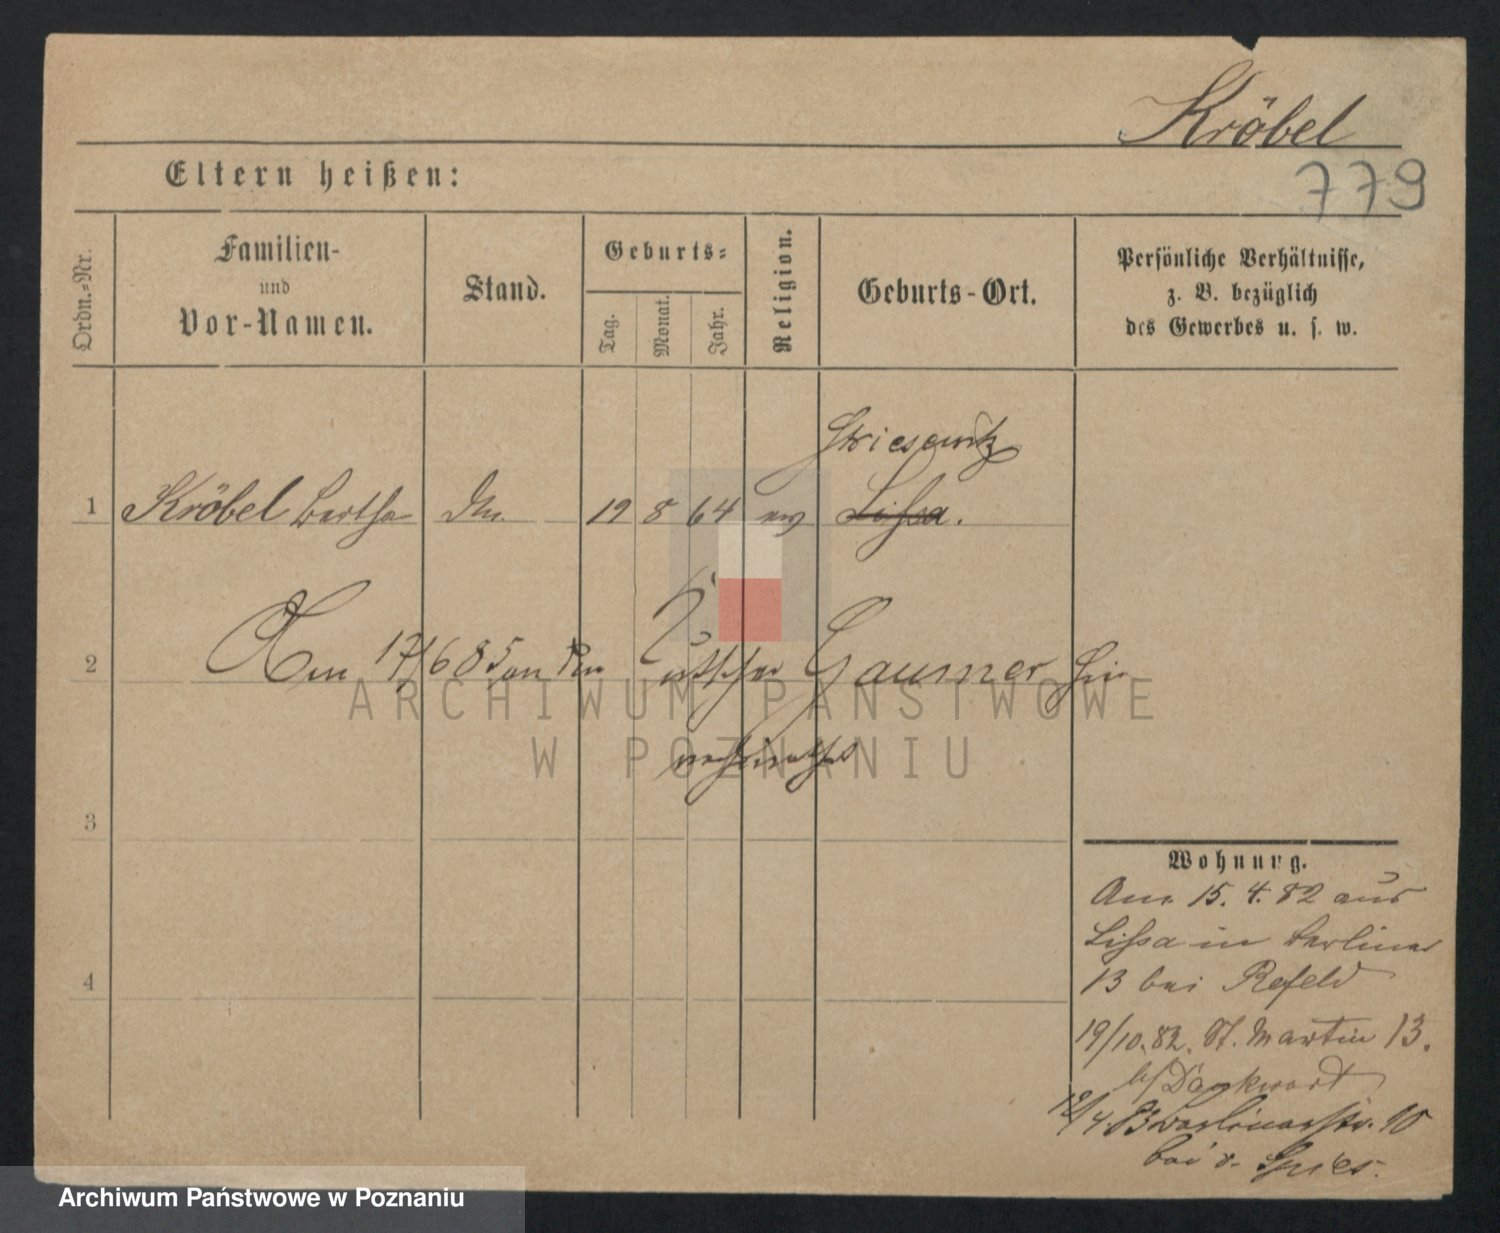 Kröbel
779
Eltern heißen:
Ordn.-Nr.
Familien-
und
Vor-Namen.
Stand.
Geburts-
Tag.
Monat.
Jahr.
Religion.
Geburts-Ort.
Persönliche Verhältnisse,
z. B. bezüglich
des Gewerbes u. s. w.
Striesewitz
1 Kröbel Bertha 19 8 64 ev Lissa.
2 Am 17/6 85 an den Kutscher Gaumer hier
verheirathet
3
4
Wohnung.
Am 15. 4. 82 aus
Lissa in Berliner
13 bei Refeld
19/10. 82. St. Martin 13.
b/ Dankwart
12/4 83 Berlinerstr. 10
bei v. Spies.
ARCHIWUM PAŃSTWOWE
W POZNANIU
Archiwum Państwowe w Poznaniu